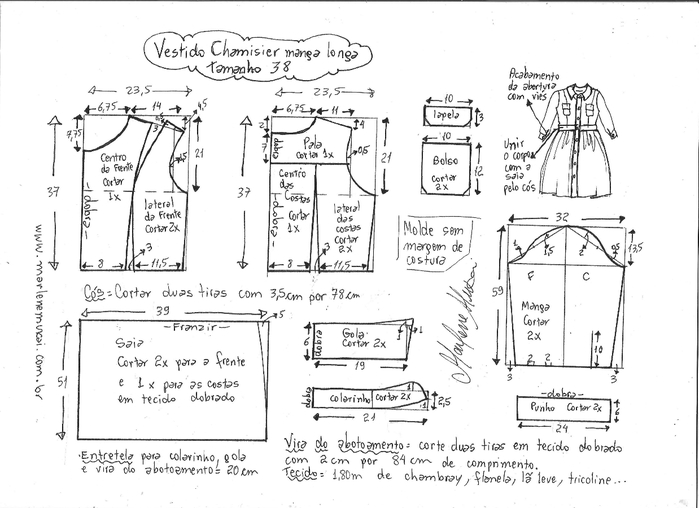 Vestido Chamisier manga longa
tamanho 38
23,5
6,75
14
4,5
3
7,75
37
21
Centro
da frente
cortar
1x
dobra
lateral
da frente
Cortar 2x
3
8
11,5
23,5
6,75
11
2
4
7
dobra
Pala
cortar 1x
0,5
37
21
Centro
das
Costas
Cortar
1x
dobra
lateral
das
costas
cortar
2x
3
8
11,5
10
lapela
3
10
Bolso
cortar
2x
12
Acabamento
da abertura
com viés
Unir
o corpo
com a
saia
pelo cós
Molde sem
margem de
costura
32
1
1,5
2
0,5
13,5
59
F
C
Manga
Cortar
2x
10
2
2
3
3
Cós = Cortar duas tiras com 3,5cm por 78cm
39
5
- Franzir -
51
Saia
Cortar 2x para a frente
e 1x para as costas
em tecido dobrado
6
dobra
Gola
Cortar 2x
1
1
19
dobra
colarinho
cortar 2x
1
1
2,5
21
- dobra -
Punho Cortar 2x
6
24
www.marlenemukai.com.br
• Entretela para colarinho, gola
e vira do abotoamento = 20cm
Vira do abotoamento = corte duas tiras em tecido dobrado
com 2cm por 84cm de comprimento.
Tecido = 1,80m de chambray, flanela, lã leve, tricoline...